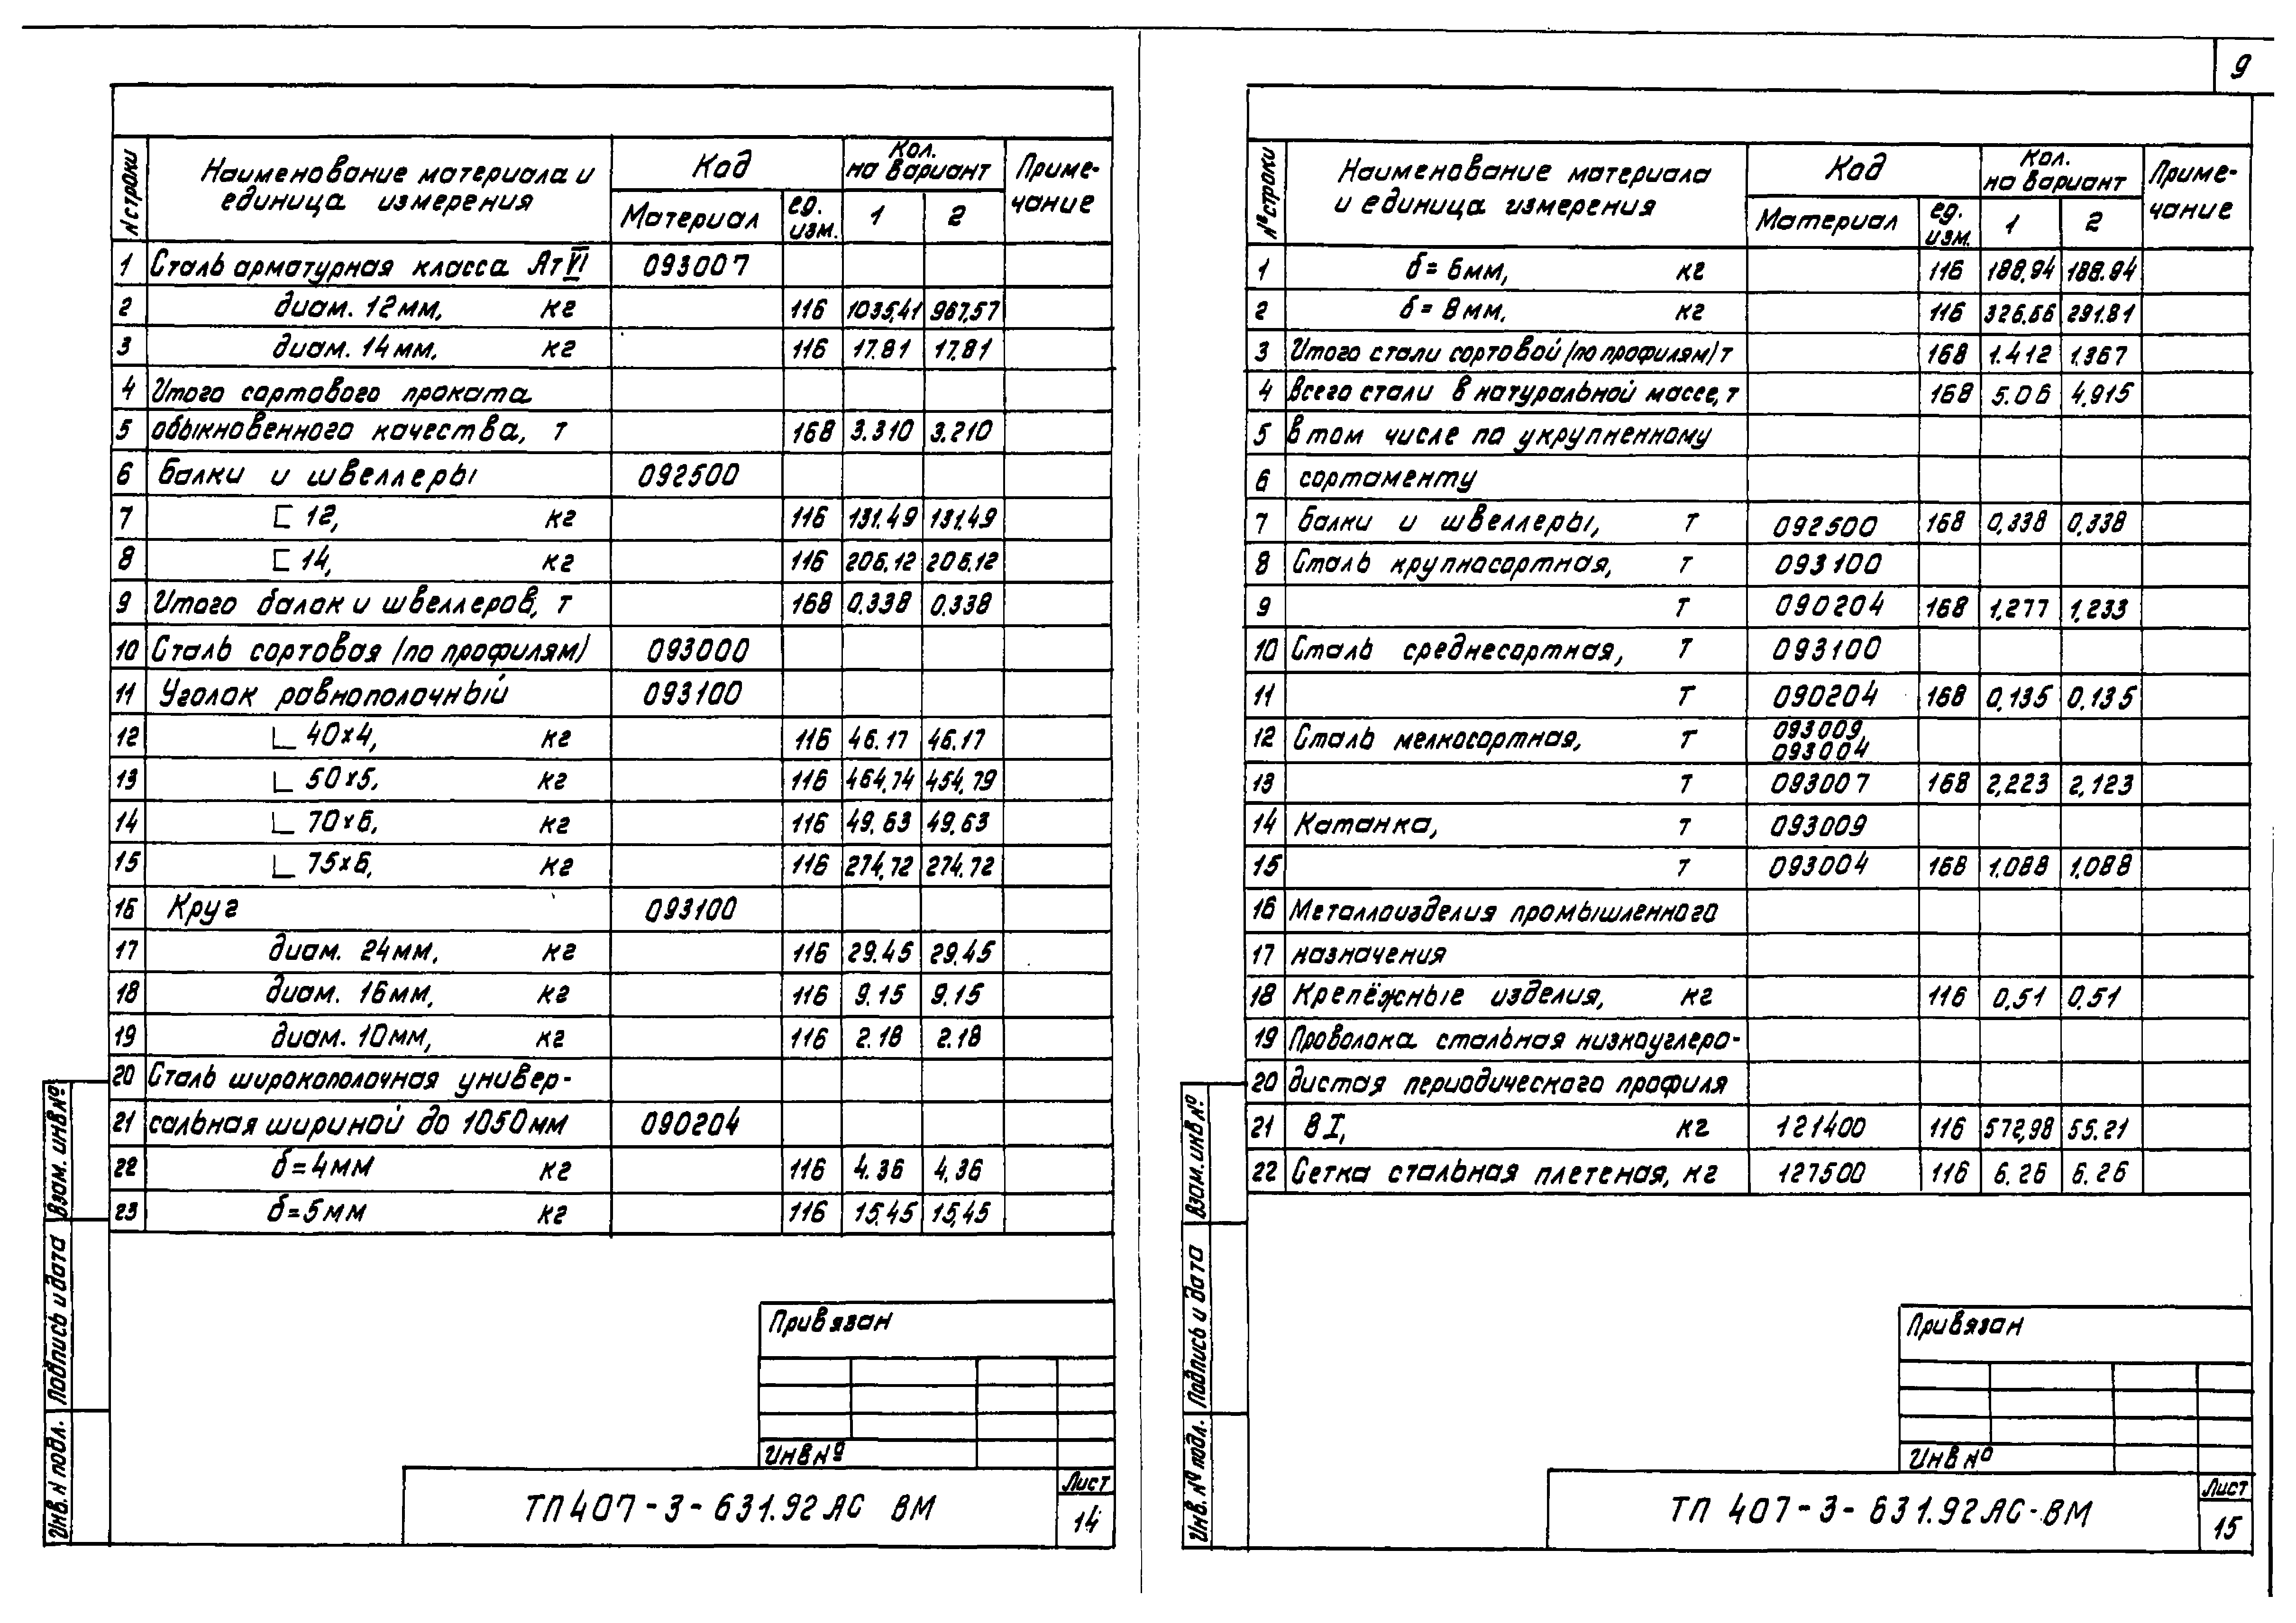 9
№ строки | Наименование материала и единица измерения | Код | Кол. на вариант | Приме-чание
Материал | ед. изм. | 1 | 2
1 Сталь арматурная класса АтVI 093007
2 диам. 12мм, кг 116 1035,41 967,57
3 диам. 14мм, кг 116 17.81 17.81
4 Итого сортового проката
5 обыкновенного качества, т 168 3.310 3.210
6 Балки и швеллеры 092500
7 [ 12, кг 116 131.49 131.49
8 [ 14, кг 116 206.12 206.12
9 Итого балок и швеллеров, т 168 0.338 0.338
10 Сталь сортовая (по профилям) 093000
11 Уголок равнополочный 093100
12 ∟ 40х4, кг 116 46.17 46.17
13 ∟ 50х5, кг 116 464,74 454,79
14 ∟ 70х6, кг 116 49.63 49.63
15 ∟ 75х6, кг 116 274,72 274.72
16 Круг 093100
17 диам. 24мм, кг 116 29.45 29.45
18 диам. 16мм, кг 116 9.15 9.15
19 диам. 10мм, кг 116 2.18 2.18
20 Сталь широкополочная универ-
21 сальная шириной до 1050мм 090204
22 б=4мм кг 116 4.36 4.36
23 б=5мм кг 116 15,45 15,45
Привязан
Инв №
ТП 407-3-631.92 АС ВМ
Лист
14
Взам. инв №
Подпись и дата
Инв. N подл.
№ строки | Наименование материала и единица измерения | Код | Кол. на вариант | Приме-чание
Материал | ед. изм. | 1 | 2
1 б=6мм, кг 116 188,94 188.94
2 б=8мм, кг 116 326.66 291.81
3 Итого стали сортовой (по профилям) т 168 1.412 1.367
4 Всего стали в натуральной массе, т 168 5.06 4.915
5 в том числе по укрупненному
6 сортаменту
7 Балки и швеллеры, т 092500 168 0,338 0,338
8 Сталь крупносортная, т 093100
9 т 090204 168 1,277 1,233
10 Сталь среднесортная, т 093100
11 т 090204 168 0,135 0.135
12 Сталь мелкосортная, т 093009, 093004
13 т 093007 168 2,223 2,123
14 Катанка, т 093009
15 т 093004 168 1.088 1.088
16 Металлоизделия промышленного
17 назначения
18 Крепёжные изделия, кг 116 0,51 0,51
19 Проволока стальная низкоуглеро-
20 дистая периодического профиля
21 ВI, кг 121400 116 572,98 55.21
22 Сетка стальная плетеная, кг 127500 116 6.26 6.26
Привязан
Инв №
ТП 407-3-631.92 АС-ВМ
Лист
15
Взам. инв №
Подпись и дата
Инв. № подл.